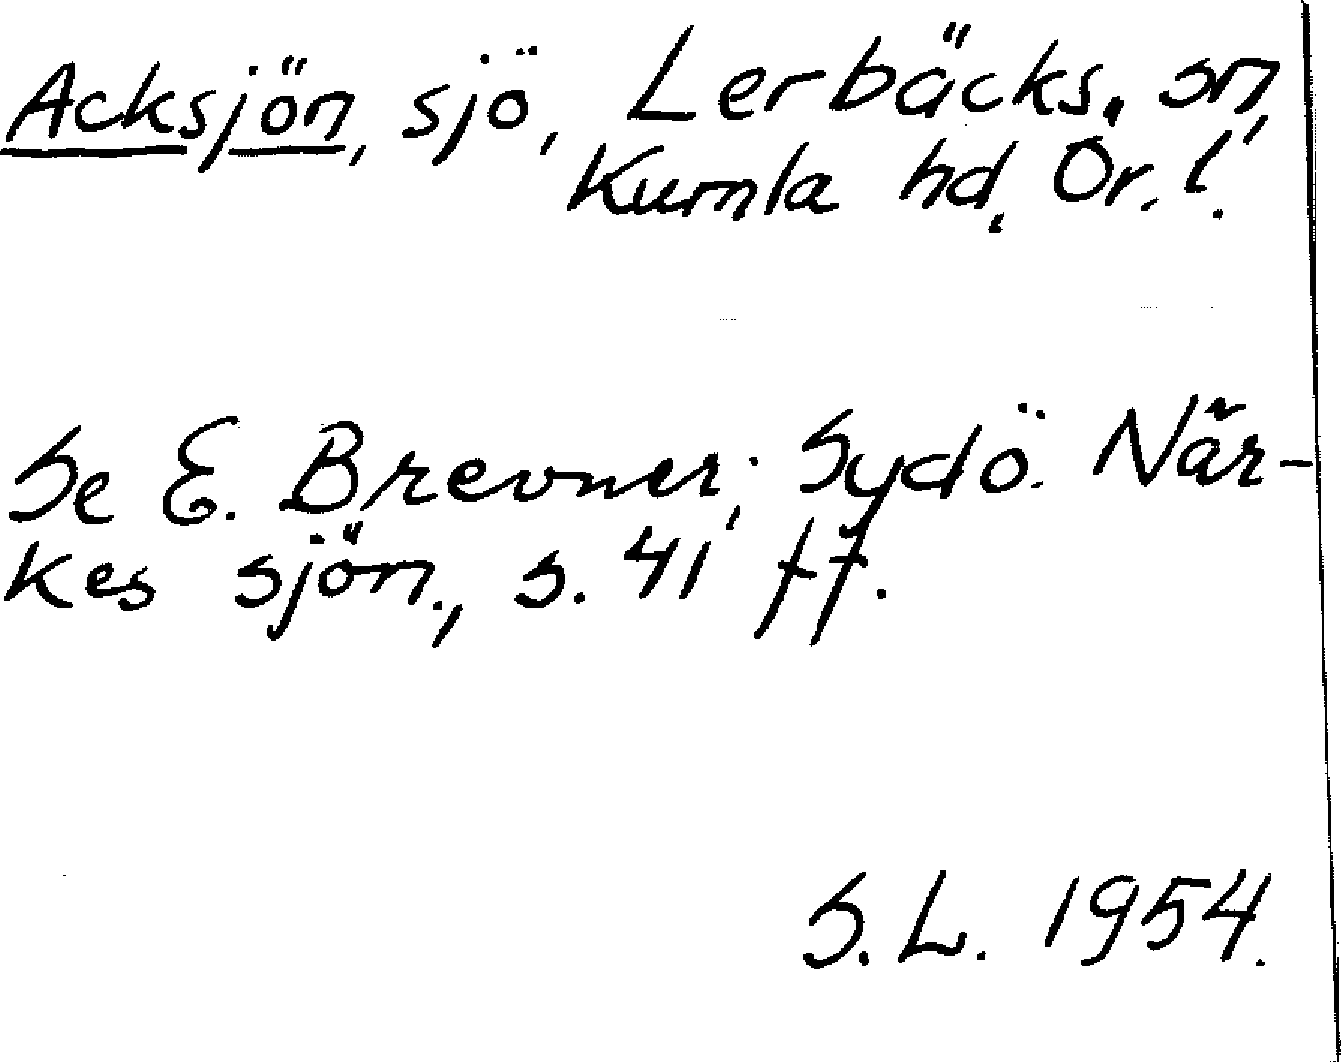 Acksjön, sjö, Lerbäcks. sn,
Kumla hd, Ör. l.
Se E. Brevner, Sydö. När-
kes sjön., s. 41 ff.
S. L. 1954.